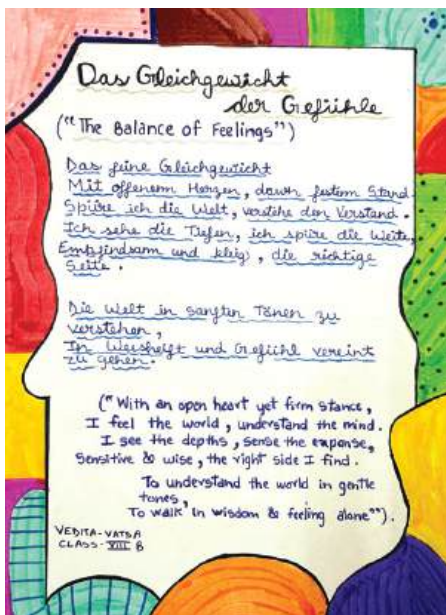 Das Gleichgewicht
der Gefühle
("The Balance of Feelings")
Das feine Gleichgewicht
Mit offenem Herzen, dawh festem Stand
Spüre ich die Welt, verstehe den Verstand.
Ich sehe die Tiefen, ich spüre die Weite,
Empfindsam und kleig, die richtige
Seite.
Die Welt in sanften Tönen zu
verstehen,
In Weisheift und Gefühl vereint
zu gehen.
("With an open heart yet firm stance,
I feel the world, understand the mind.
I see the depths, sense the expanse,
Sensitive & wise, the right side I find.
To understand the world in gentle
tones,
To walk in wisdom & feeling alone"").
VEDITA-VATSA
CLASS-VIII B